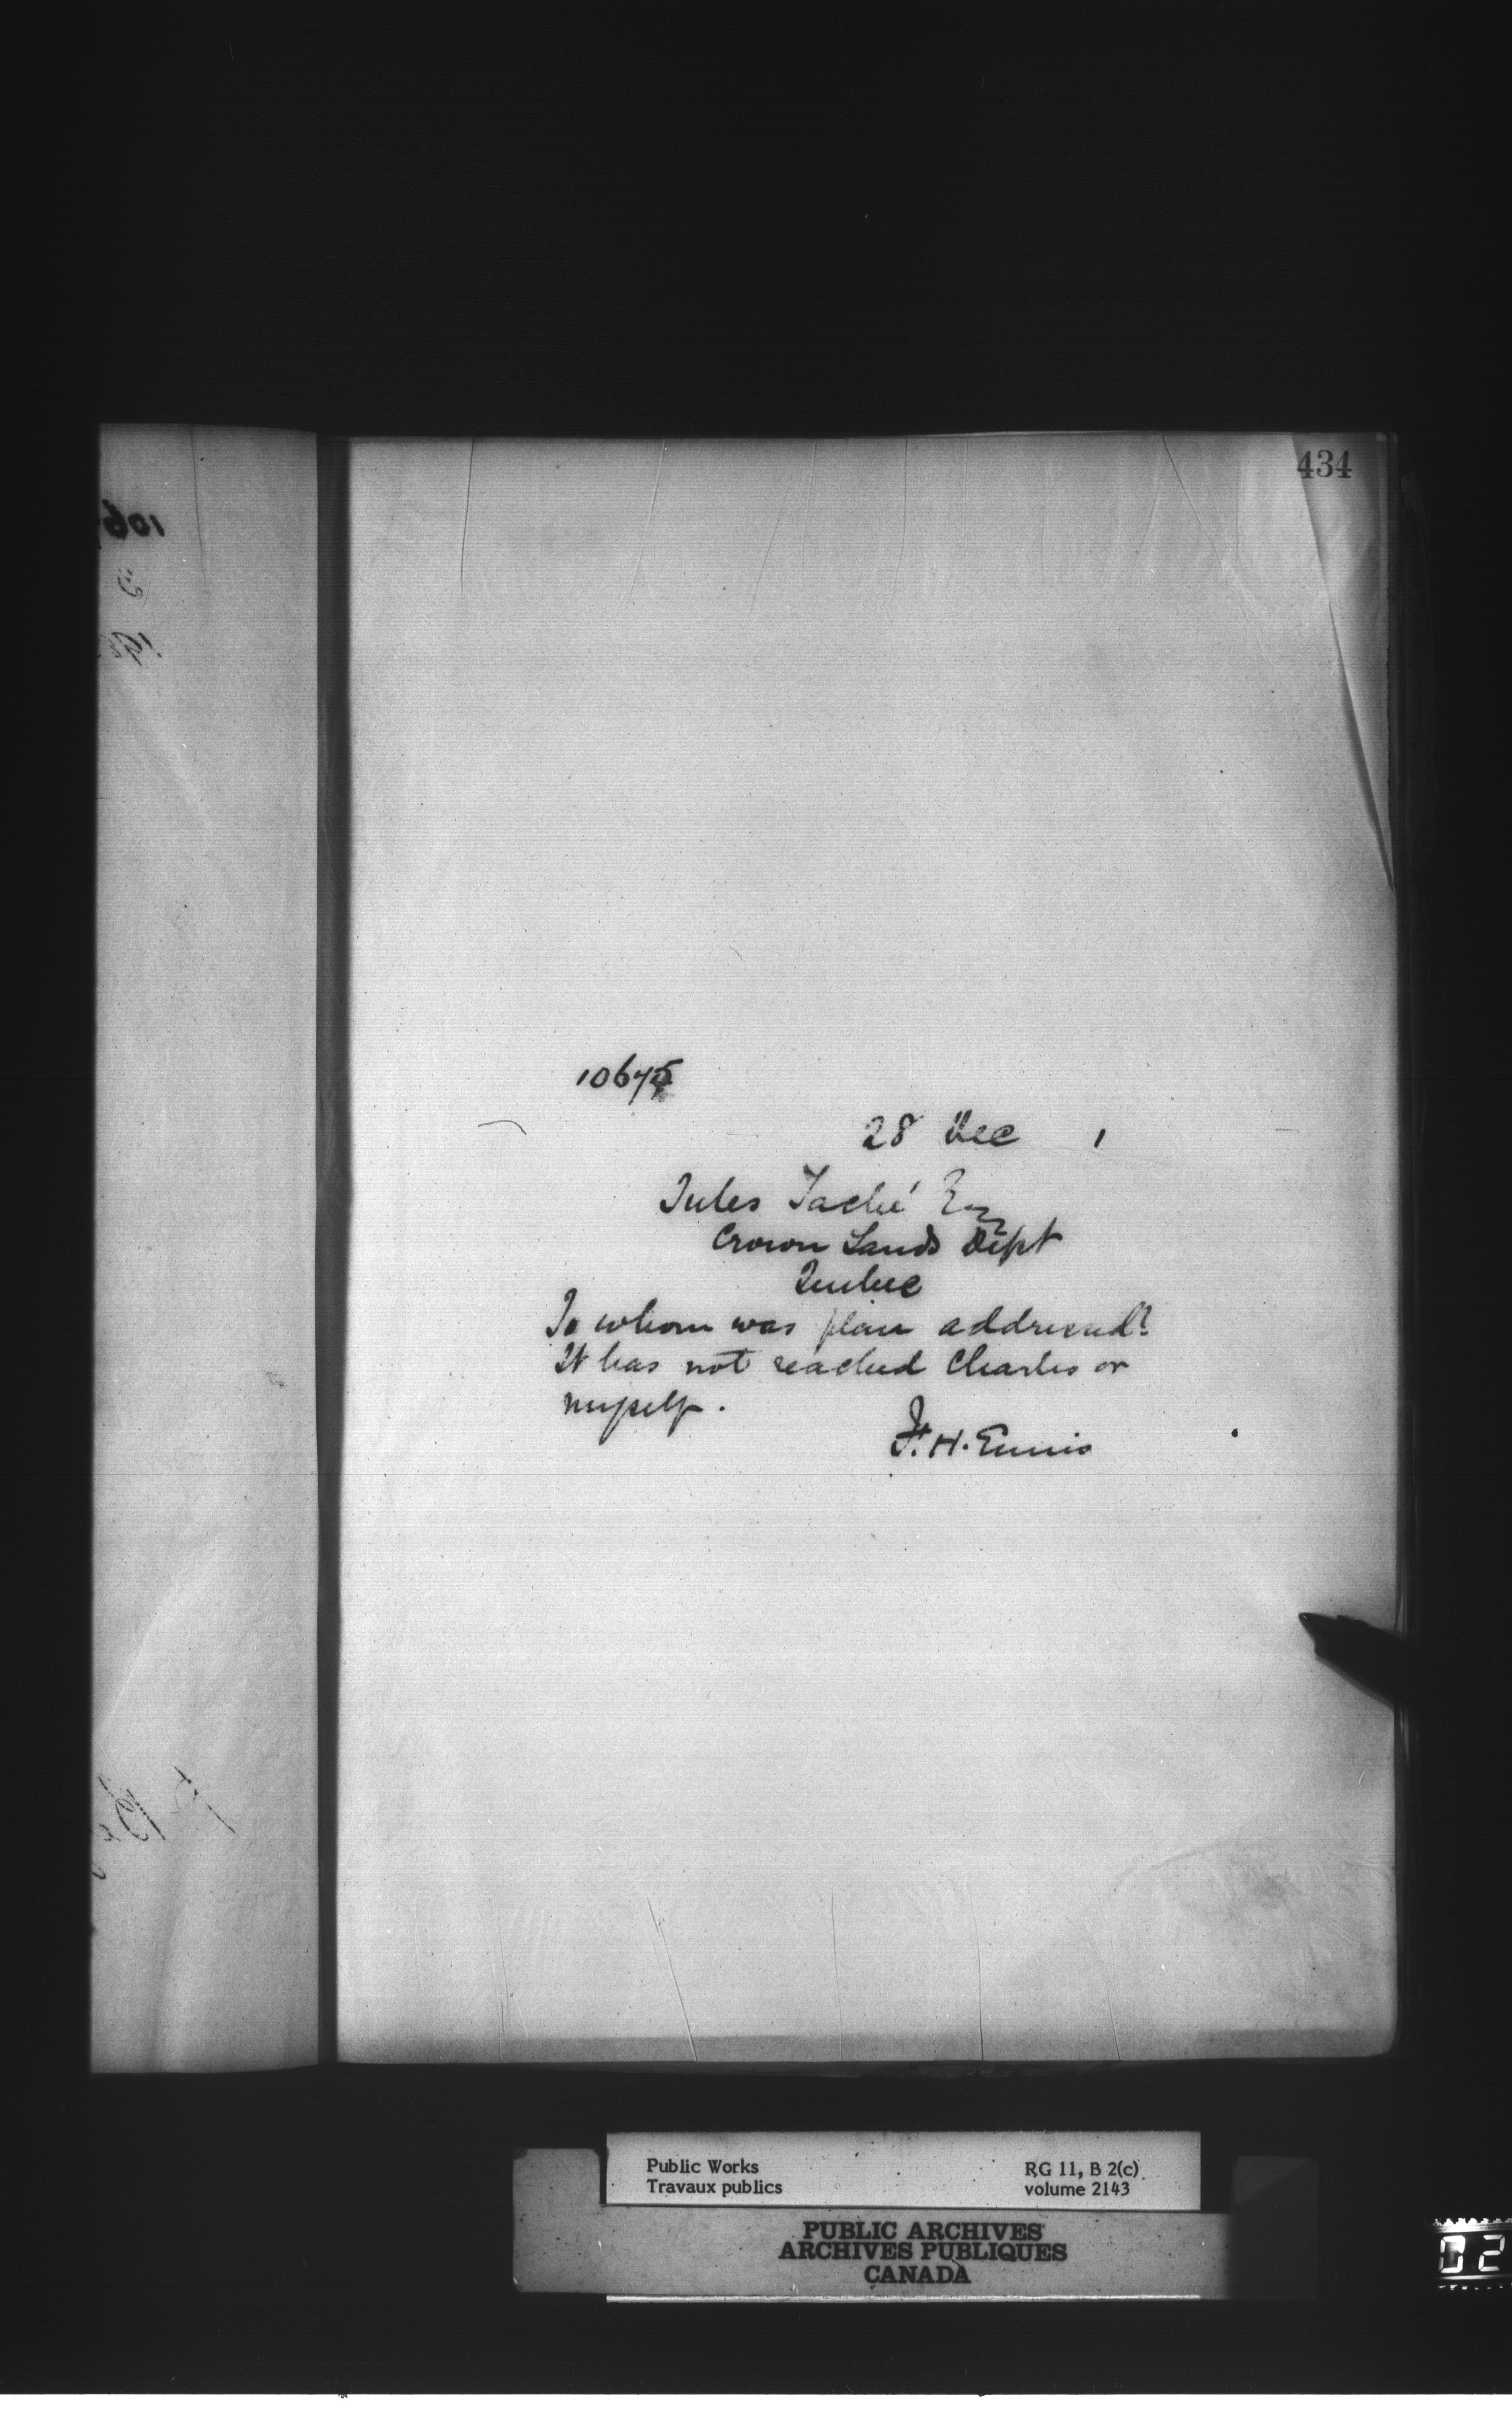 434
10675
28 Dec 1
Jules Taché Esq
Crown Lands Dept
Quebec
To whom was plan addressed?
It has not reached Charles or
myself.
F. H. Ennis
Public Works
Travaux publics
RG 11, B 2(c)
volume 2143
PUBLIC ARCHIVES
ARCHIVES PUBLIQUES
CANADA
02